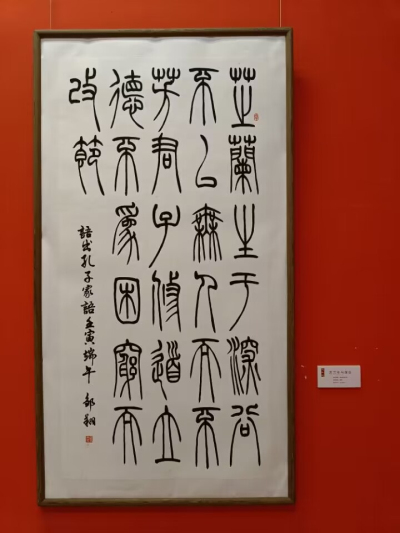 芷蘭生于深谷
不以無人而不
芳君子修道立
德不為困窮而
改節
語出孔子家語壬寅端午